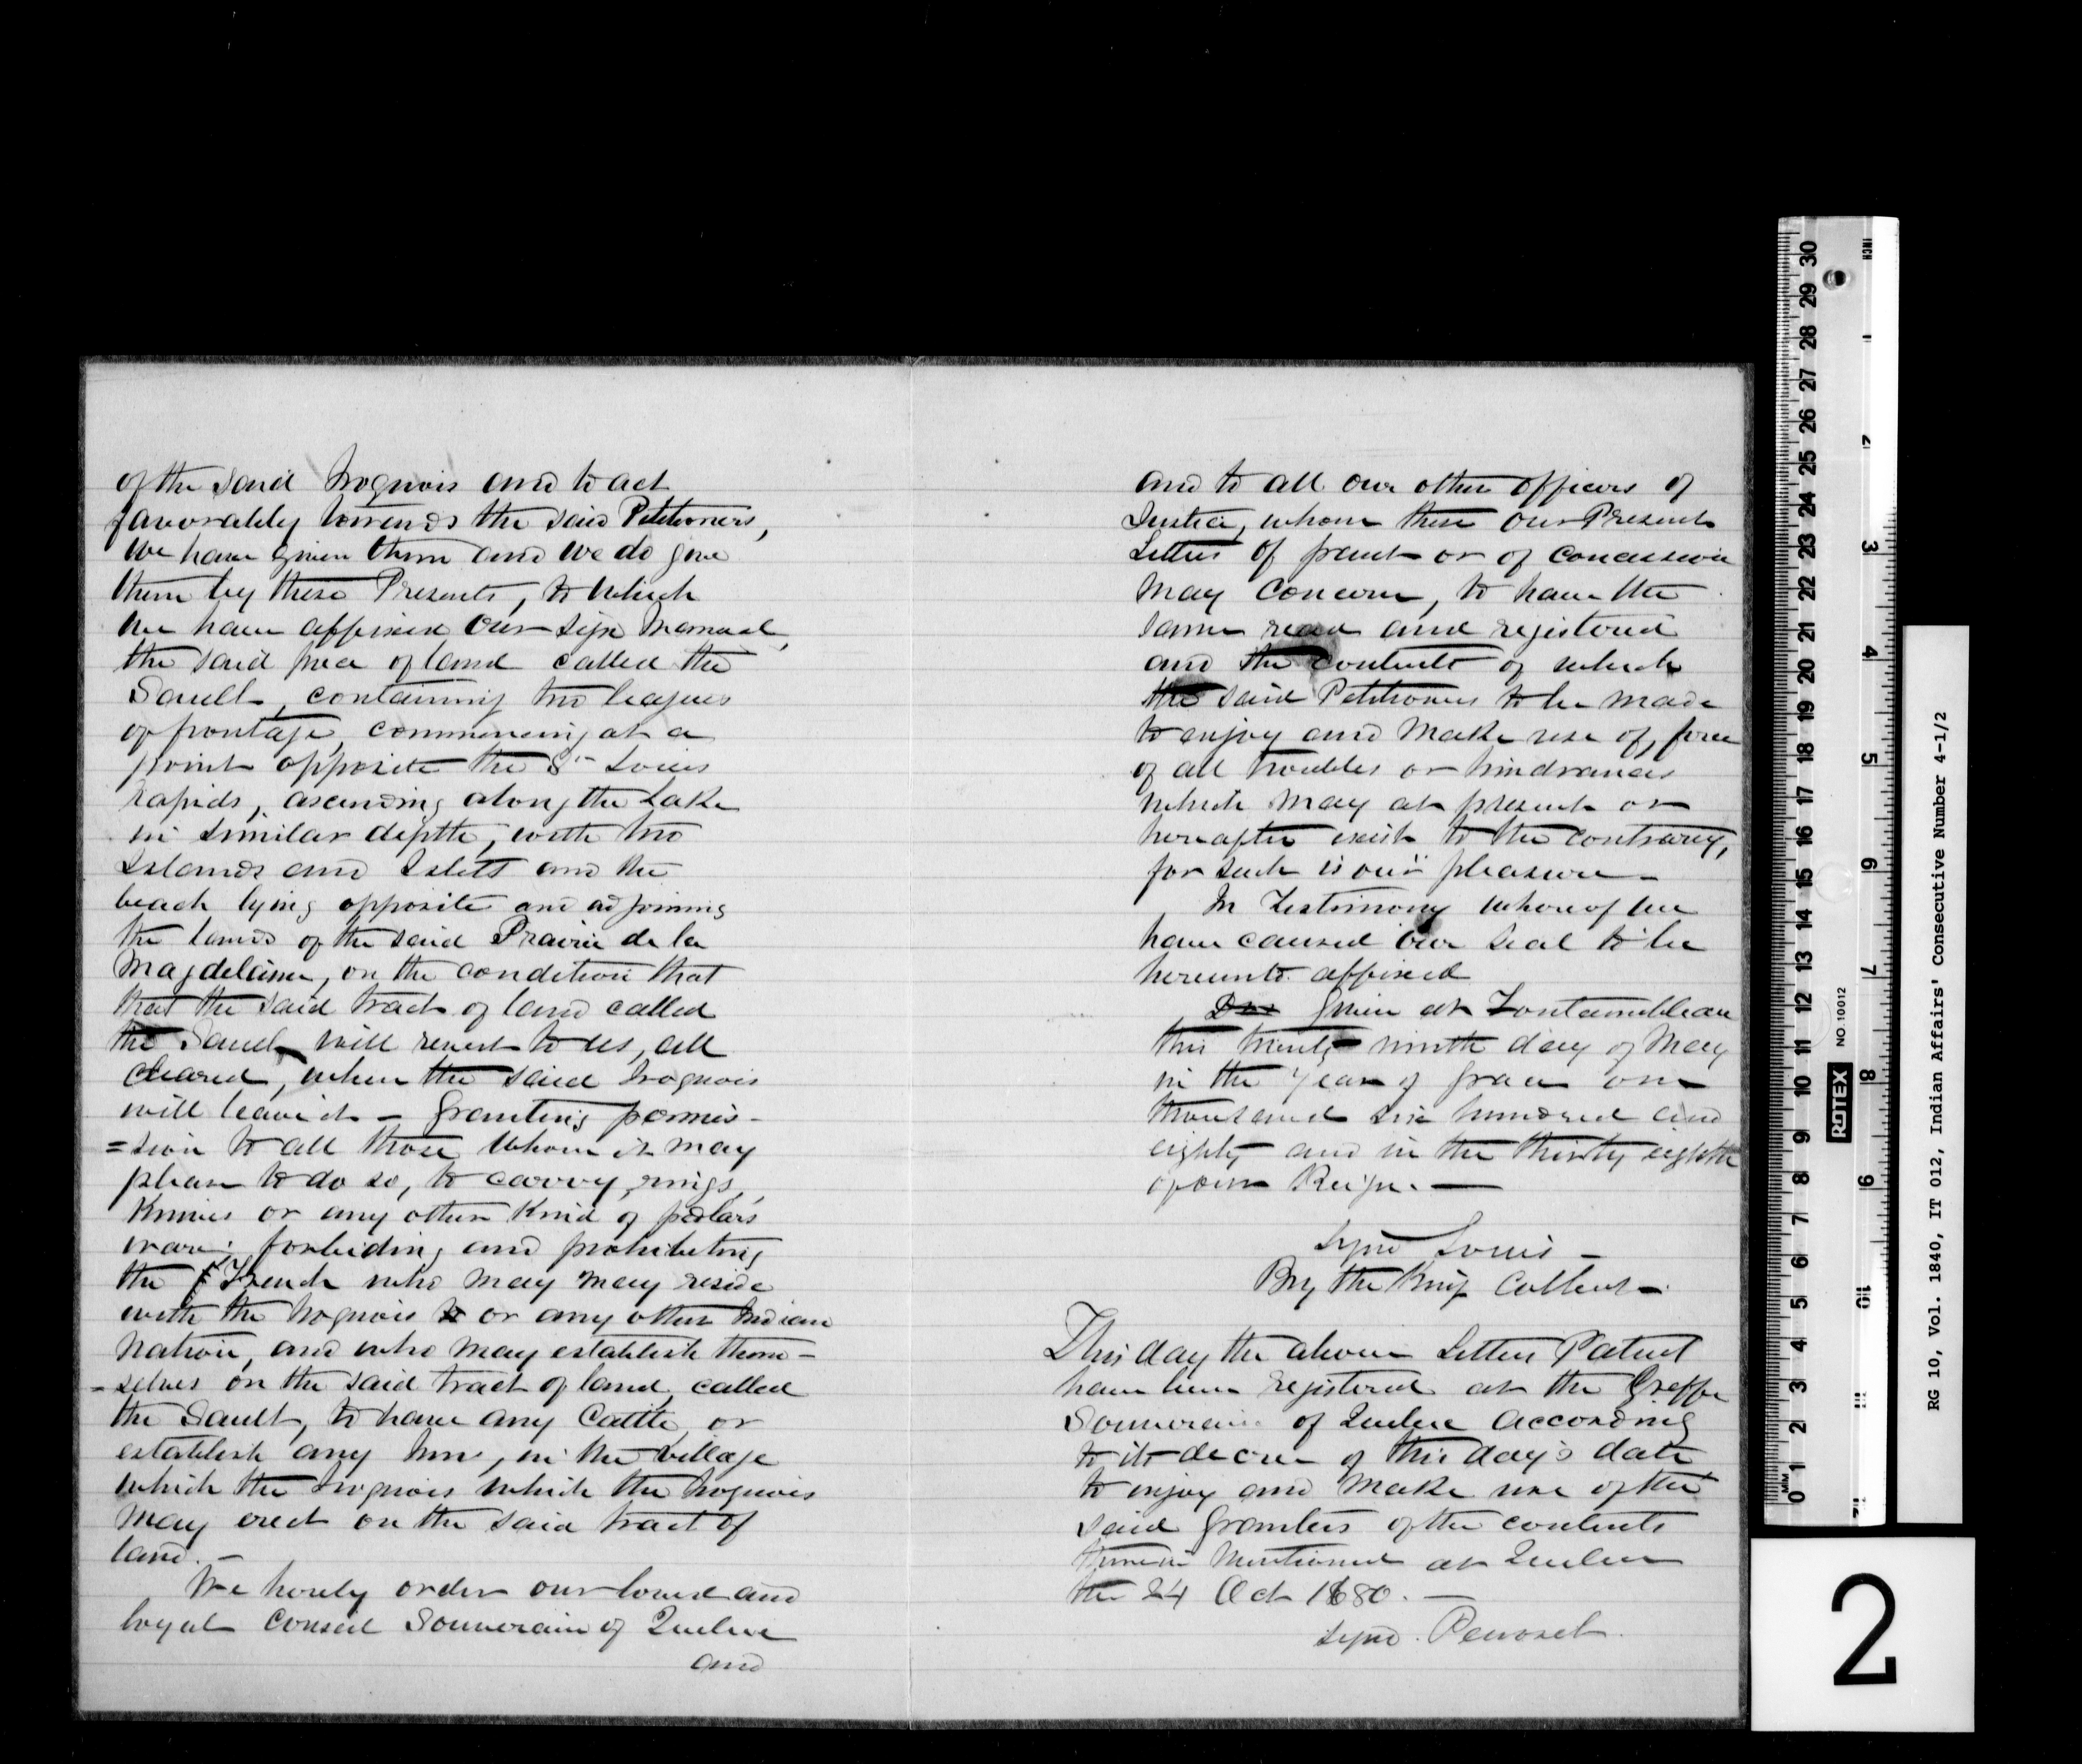 of the said Iroquois and to act
favorably towards the said Petitioners,
We have given them and we do give
them by these Presents, to which
we have affixed Our Sign Manual,
the said piece of land called the
Sault, containing two leagues
of frontage, commencing at a
point opposite the St Louis
rapids, ascending along the Lake
in similar depth, with two
Islands and Islets and the
beach lying opposite and adjoining
the lands of the said Prairie de la
Magdelaine, on the condition that
that the said tract of land called
the Sault will revert to us, all
cleared, when the said Iroquois
will leave it – Granting permis-
=sion to all those whom it may
please to do so, to carry, rings,
Knives or any other Kind of pedlars
ware; forbiding and prohibiting
the French who may may reside
with the Iroquois or any other Indian
Nation, and who may establish them-
-selves on the said tract of land, called
the Sault, to have any Cattle, or
establish any Inns, in the village
which the Iroquois which the Iroquois
may erect on the said tract of
land. –
We hereby order our loved and
loyal Conseil Souverain of Quebec
and
and to all our other officers of
Justice, whom these Our Present
Letters of grant or of concession
may concern, to have the
same read and registered
and the contents of which
the said Petitioners to be made
to enjoy and make use of, free
of all troubles or hindrances
which may at present or
hereafter exist to the contrary,
for such is our pleasure –
In Testimony whereof we
have caused our Seal to be
hereunto affixed
Given at Fontainebleau
this twenty ninth day of May
in the Year of Grace one
thousand six hundred and
eighty and in the thirty eighth
of our Reign. —
Signd Louis –
By the King Colbert –
This day the above Letters Patent
have been registered at the Greffe
Souverain of Quebec according
to its decree of this day's date
to enjoy and make use of the
said Grantees of the contents
therein Mentioned at Quebec
the 24 Oct 1680. —
Signd. Peuvret.
RG 10, Vol. 1840, IT 012, Indian Affairs' Consecutive Number 4-1/2
INCH
1 2 3 4 5 6 7 8 9 10 11 12
30 29 28 27 26 25 24 23 22 21 20 19 18 17 16 15 14 13 12 11 10 9 8 7 6 5 4 3 2 1 0
MM
ROTEX
NO 10012
2